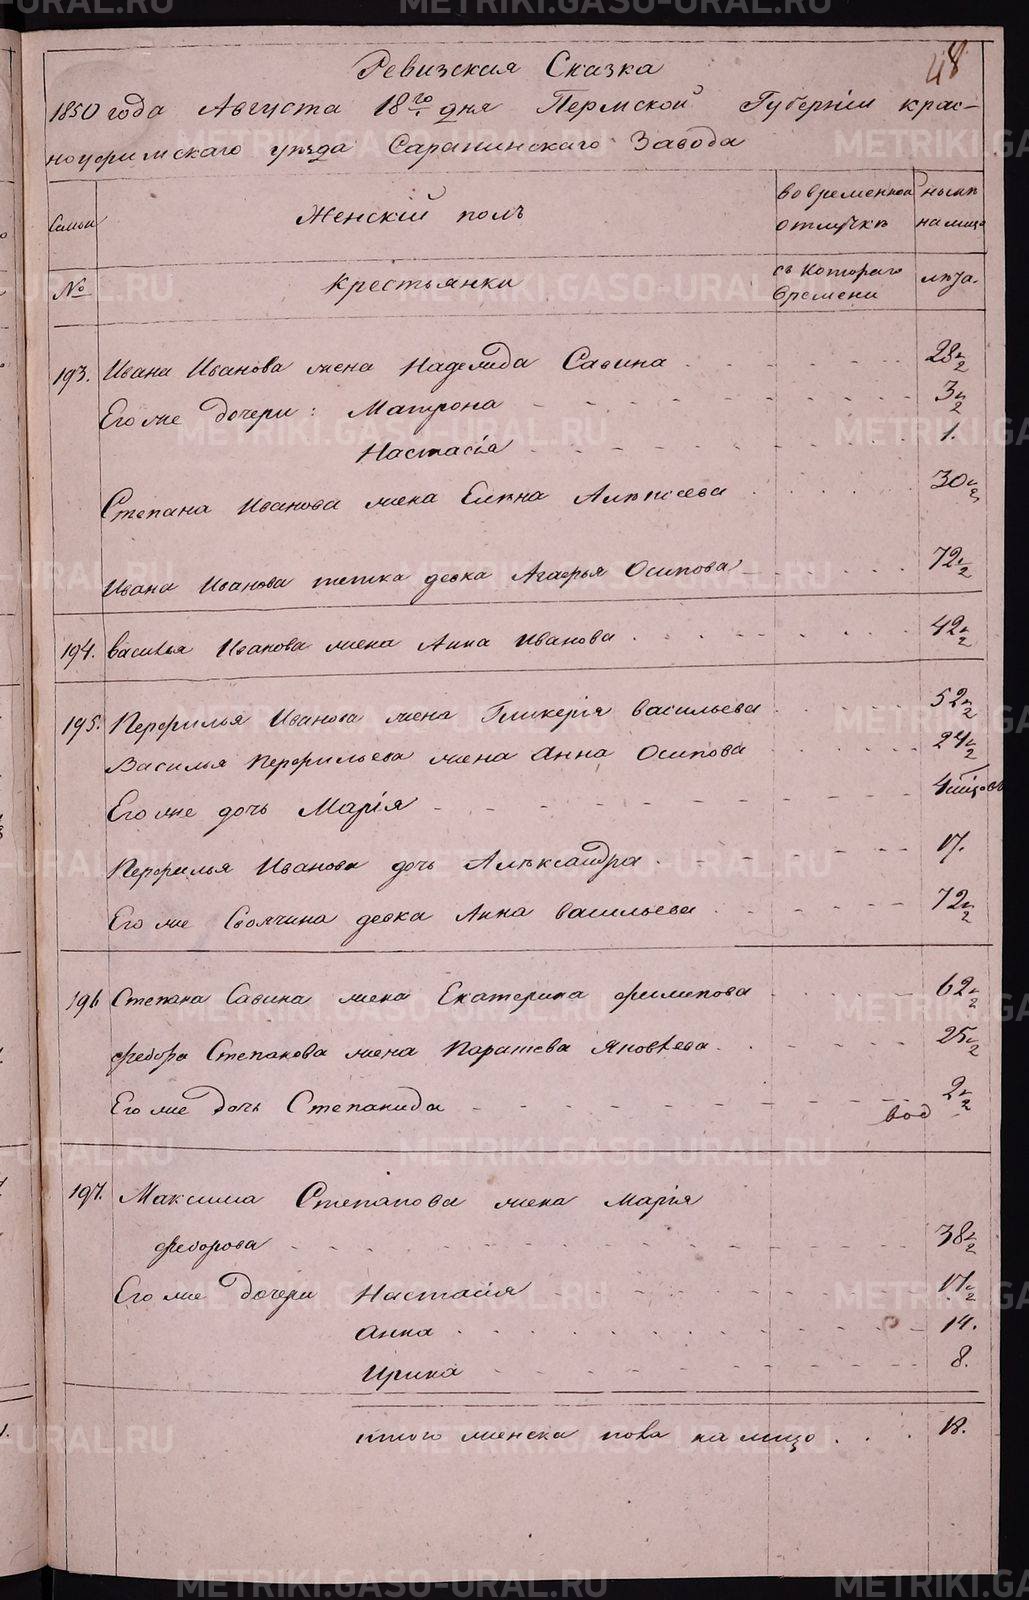 48
Ревизская Сказка
1850 года Августа 18го дня Пермской Губернiи крас-
ноуфимскаго уѣзда Саранинскаго Завода
Семьи
Женскiй полъ
во временной отлучкѣ
нынѣ на лицо
№
крестьянки
съ котораго времени
лѣта.
193. Ивана Иванова жена Надежда Савина 28 1/2
Его же дочери: Матрона 3 1/2
Настасiя 1.
Степана Иванова жена Елѣна Алѣксеева 30 1/2
Ивана Иванова тетка девка Агафья Осипова 72 1/2
194. Василья Иванова жена Анна Иванова 42 1/2
195. Перфилья Иванова жена Гликерiя Васильева 52 1/2
Василья Перфильева жена Анна Осипова 24 1/2
Его же дочь Марiя 4
Перфилья Иванова дочь Алѣксандра 17.
Его же Своячина девка Анна Васильева 72 1/2
196 Степана Савина жена Екатерина Филипова 62 1/2
Федора Степанова жена Парасева Яковлева 25 1/2
Его же дочь Степанида 2 1/2
197. Максима Степанова жена Марiя
Федорова 38 1/2
Его же дочери Настасiя 17 1/2
Анна 14.
Ирина 8.
итого женска пола на лицо 18.
METRIKI.GASO-URAL.RU